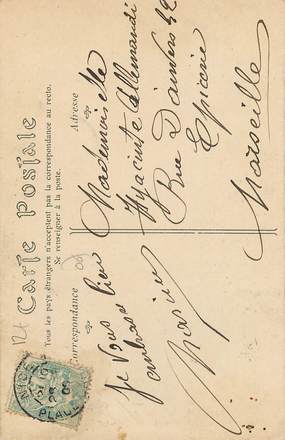 Carte Postale
Tous les pays étrangers n'acceptent pas la correspondance au recto.
Se renseigner à la poste.
Correspondance
Adresse
Je vous
embrasse
Marius
Mademoiselle
Hyacinte Allemandi
Rue D'anvers 42
Epicerie
Marseille